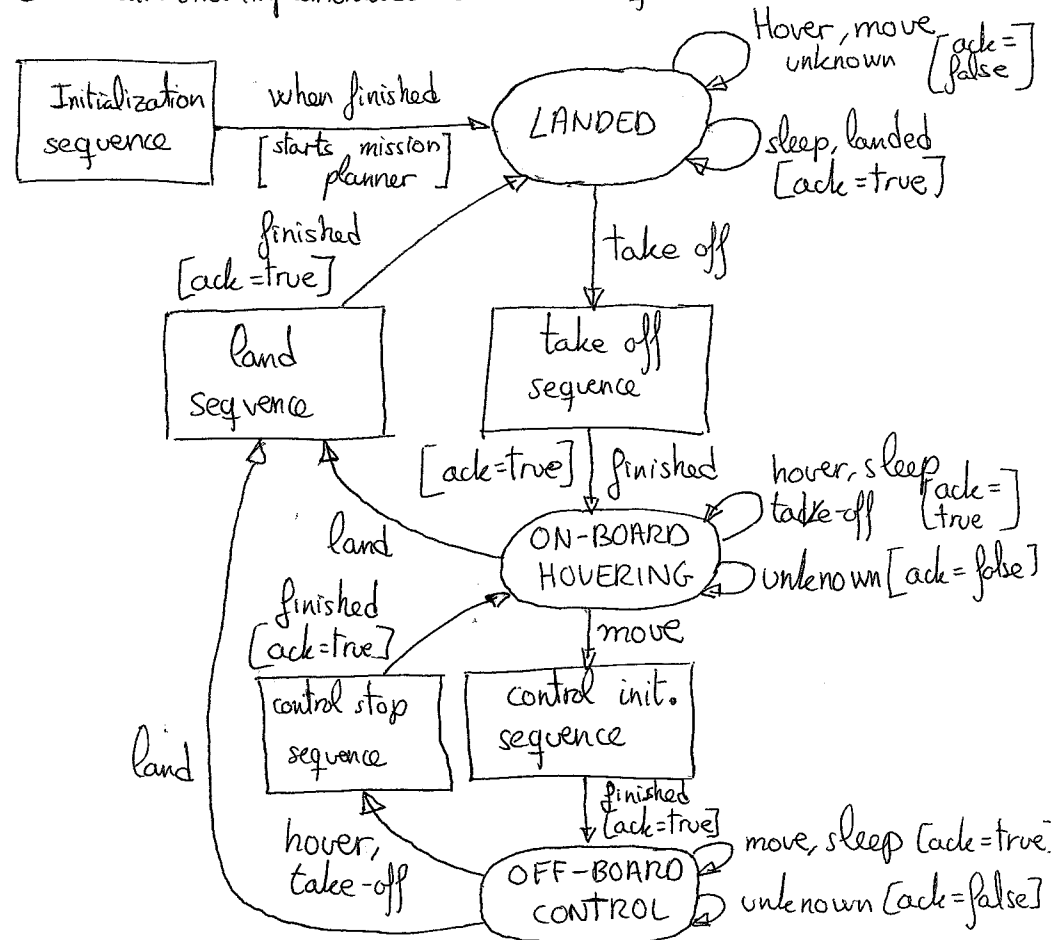 Initialization
sequence
when finished
[starts mission
planner]
LANDED
Hover, move
unknown [ack=
false]
sleep, landed
[ack=true]
finished
[ack=true]
take off
land
sequence
take off
sequence
[ack=true] finished
hover, sleep
take-off [ack=
true]
land
ON-BOARD
HOVERING
unknown [ack=false]
finished
[ack=true]
move
control stop
sequence
control init.
sequence
land
finished
[ack=true]
hover,
take-off
OFF-BOARD
CONTROL
move, sleep [ack=true]
unknown [ack=false]